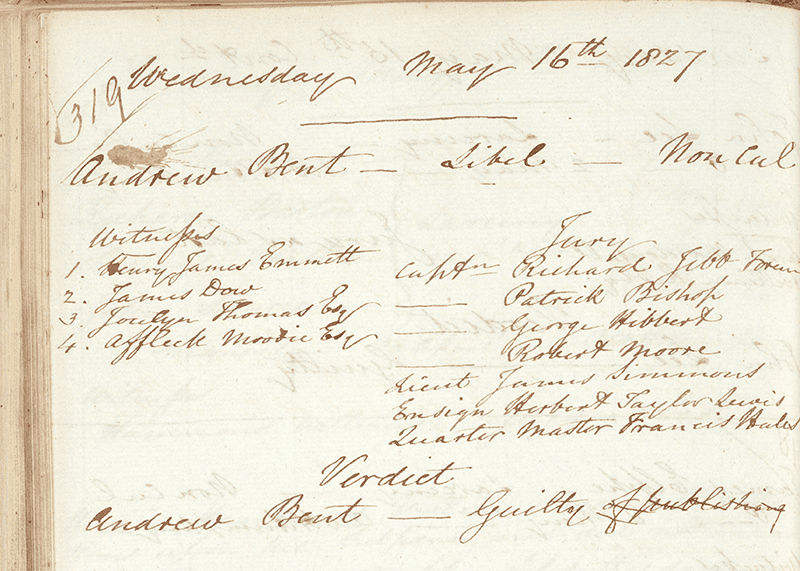 Wednesday May 16th 1827
319
Andrew Bent — Libel — Non Cul
Witnesses
1. Henry James Emmett
2. James Dow
3. Jocelyn Thomas Esq
4. Affleck Moodie Esq
Jury
Captn Richard Jebb Forem
— Patrick Bishop
— George Hibbert
— Robert Moore
Lieut James Simmons
Ensign Herbert Taylor Lewis
Quarter Master Francis Hales
Verdict
Andrew Bent — Guilty of publishing